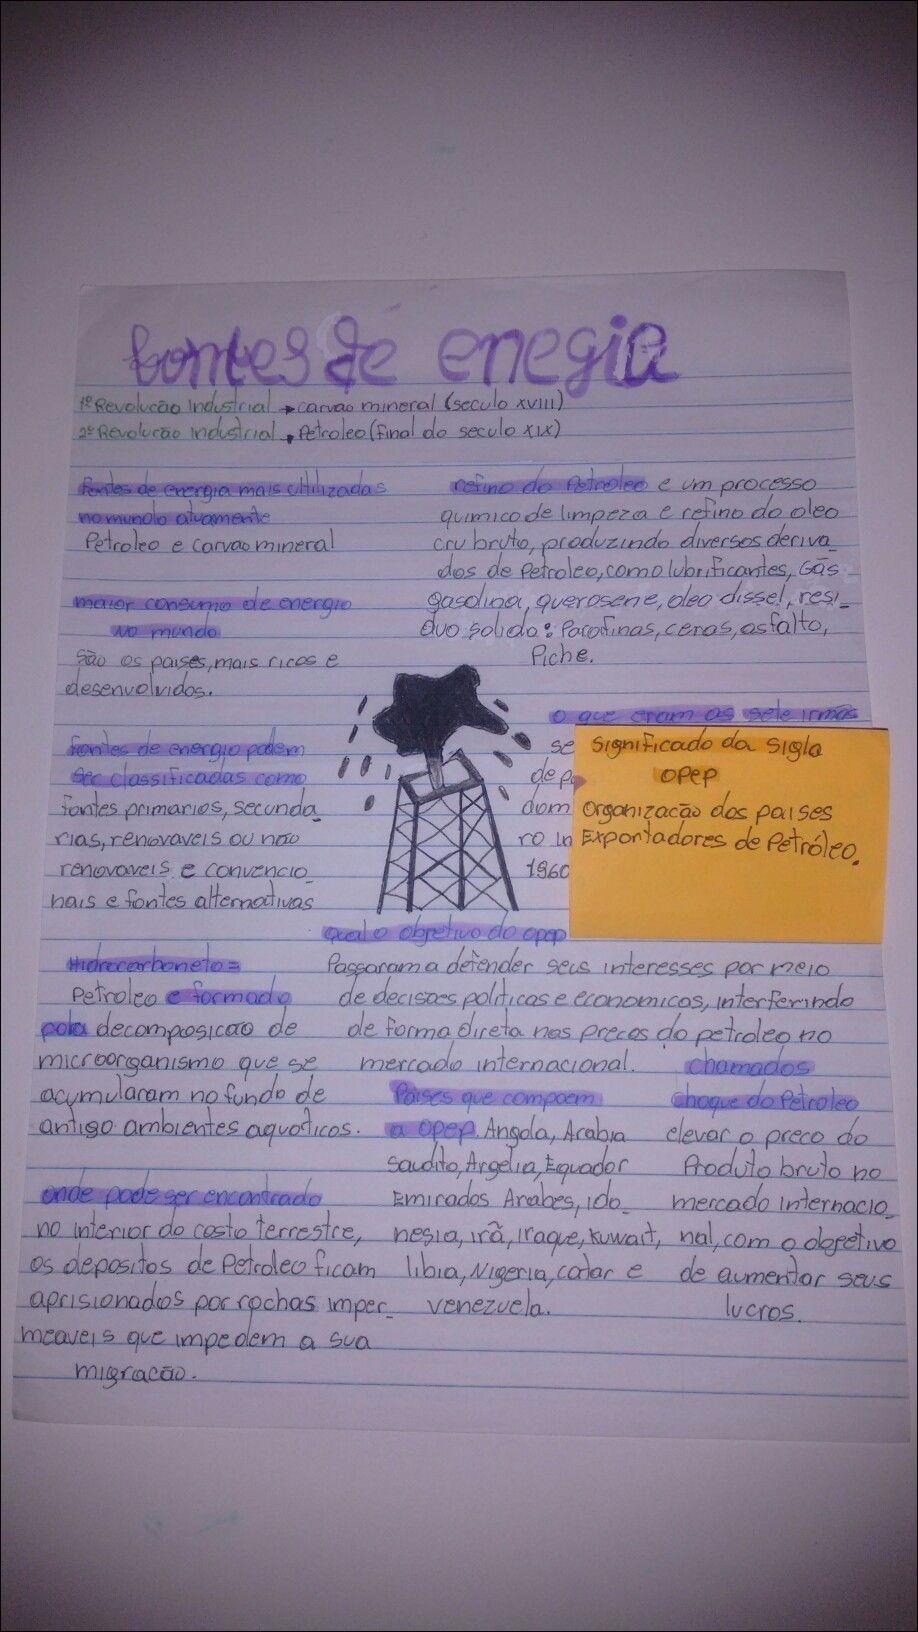 fontes de enegia
1º Revolucão Industrial → carvao mineral (seculo XVIII)
2º Revolucão Industrial → Petroleo (final do seculo XIX)
fontes de energia mais ultilizadas
no mundo atuamente
Petroleo e carvao mineral
maior consumo de energio
no mundo
são os paises, mais ricos e
desenvolvidos.
fontes de energio podem
ser classificadas como
fontes primarios, secunda_
rias, renovaveis ou não
renovaveis e convencio_
nais e fontes alternativas
Hidrecarboneto =
Petroleo e formado
pola decomposicao de
microorganismo que se
acumularam no fundo de
antigo ambientes aquoticos.
onde pode ser encontrado
no interior do costo terrestre,
os depositos de Petroleo ficam
aprisionados por rochas imper_
meaveis que impedem a sua
migracão.
refino do Petroleo e um processo
quimico de limpeza e refino do oleo
cru bruto, produzindo diversos deriva_
dos de Petroleo, como lubrificantes, Gás
gasolina, querosene, oleo dissel, resi_
duo solido: Parafinas, ceras, asfalto,
Piche.
o que eram as sete irmãs
se
de p
dom
ro in
1960
significado da sigla
OPEP
organização dos paises
Exportadores de Petróleo.
qual o objetivo do opep
Passaram a defender seus interesses por meio
de decisoes politicas e economicos, interferindo
de forma direta nos precos do petroleo no
mercado internacional.
Paises que compoem
a OPEP. Angola, Arabia
saudito, Argelia, Equador
Emirados Arabes, ido_
nesia, irã, iraque, Kuwait,
libia, Nigeria, catar e
venezuela.
chamados
choque do Petroleo
elevar o preco do
Produto bruto no
mercado internacio_
nal, com o objetivo
de aumentar seus
lucros.